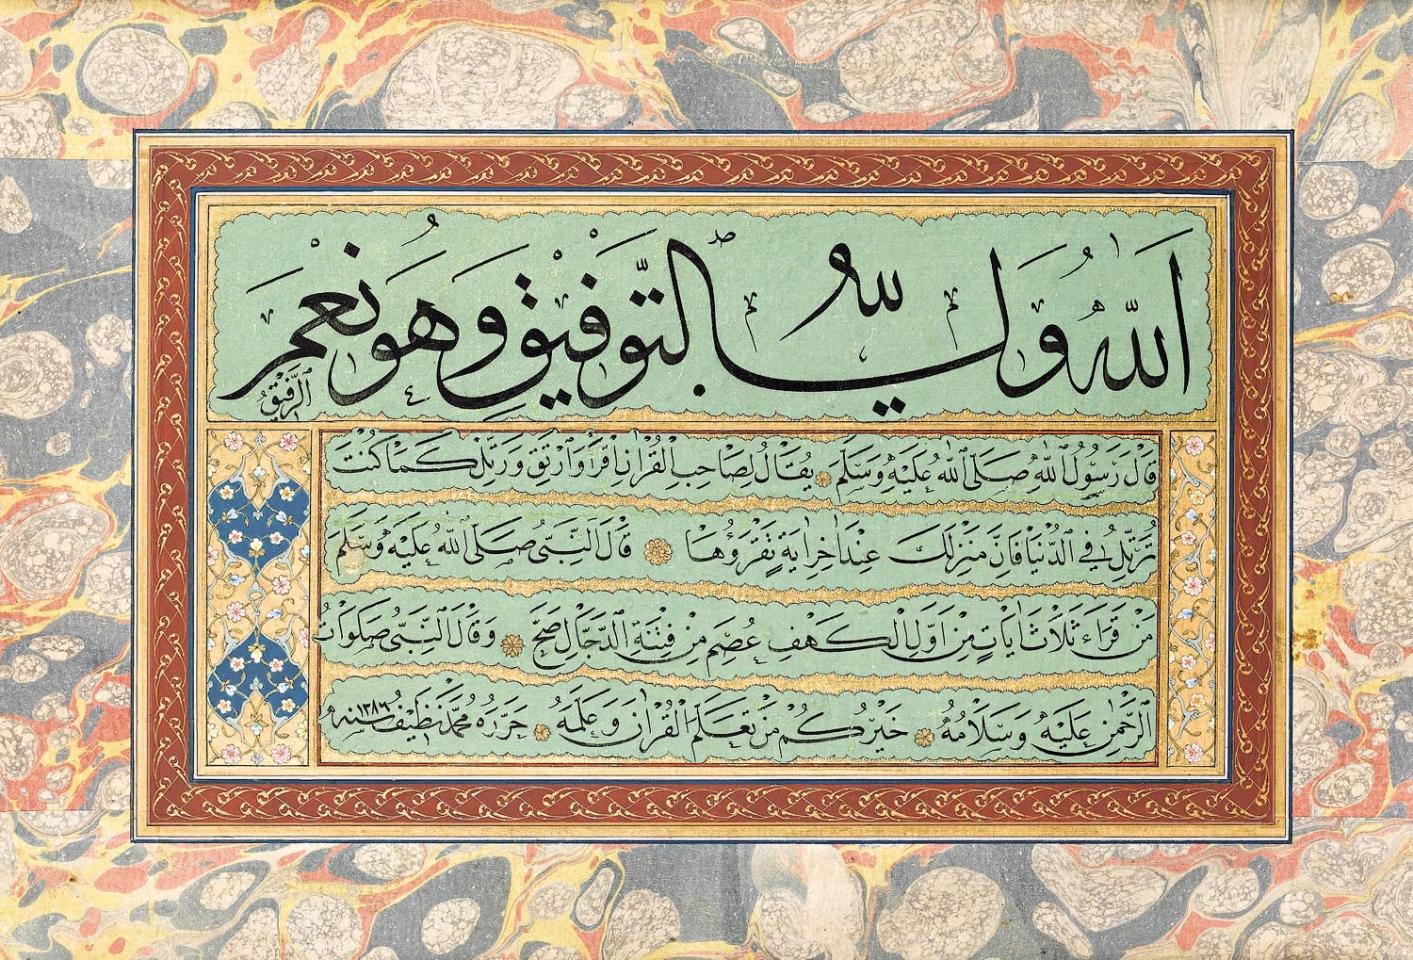 الله ولي بالتوفيق وهو نعم الرفيق
قَالَ رَسُولُ اللهِ صَلَّى اللهُ عَلَيْهِ وَسَلَّمَ يُقَالُ لِصَاحِبِ الْقُرْاٰنِ اقْرَأْ وَارْتَقِ وَرَتِّلْ كَمَا كُنْتَ
تُرَتِّلُ فِي الدُّنْيَا فَاِنَّ مَنْزِلَكَ عِنْدَ اٰخِرِ اٰيَةٍ تَقْرَؤُهَا قَالَ النَّبِيُّ صَلَّى اللهُ عَلَيْهِ وَسَلَّمَ
مَنْ قَرَاَ ثَلَاثَ اٰيَاتٍ مِنْ اَوَّلِ الْكَهْفِ عُصِمَ مِنْ فِتْنَةِ الدَّجَّالِ صَحَّ وَقَالَ النَّبِيُّ صَلَوَاتُ
الرَّحْمٰنِ عَلَيْهِ وَسَلَامُهُ خَيْرُكُمْ مَنْ تَعَلَّمَ الْقُرْاٰنَ وَعَلَّمَهُ حَرَّرَهُ مُحَمَّد نَظِيف سنه